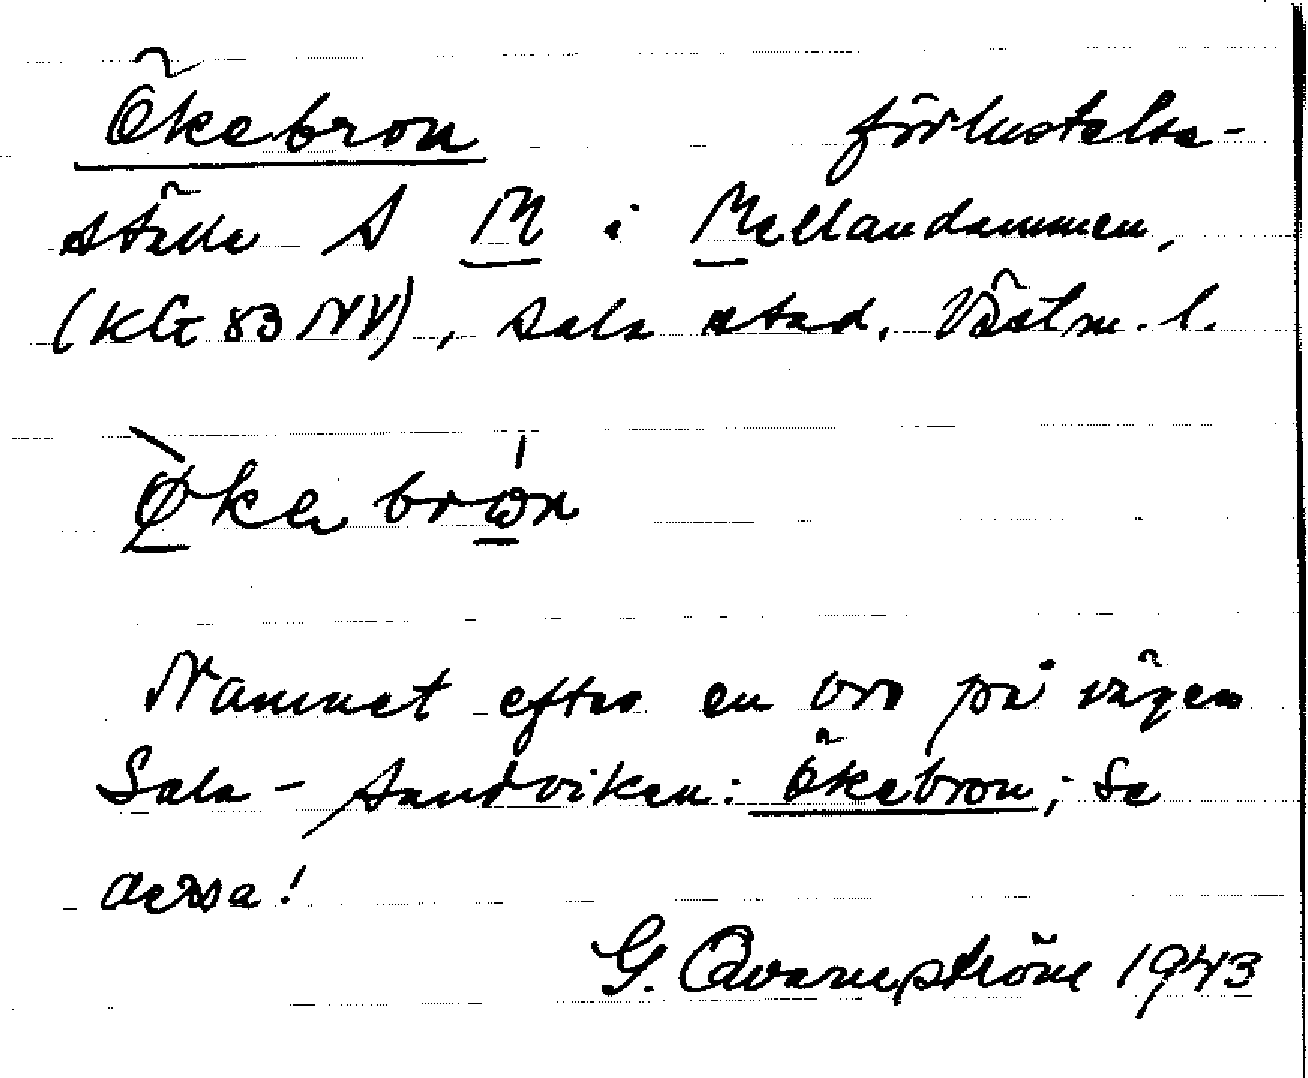 Ökebron förlustelse-
ställe S M i Mellandammen,
(KG 83 NV), Sala stad. Västm. l.
Økebrωn
Namnet efter en bro på vägen
Sala - Sandviken: Ökebron; Se
dersa!
G. Qvarnström 1943